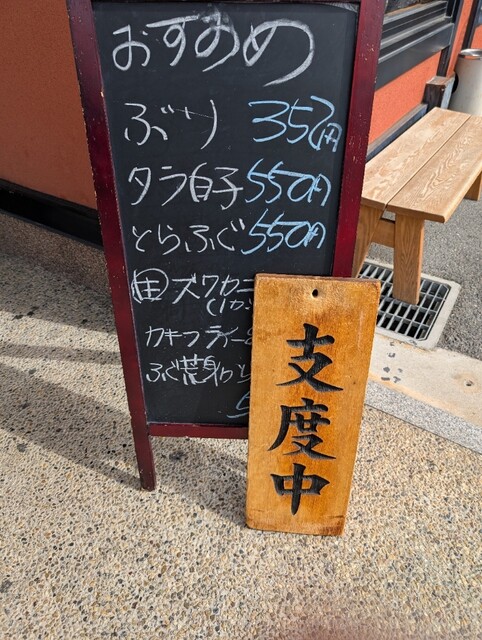 おすすめ
ぶり 352円
タラ白子 550円
とらふぐ 550円
ズワカニ
カキフライ
ふぐ
支度中